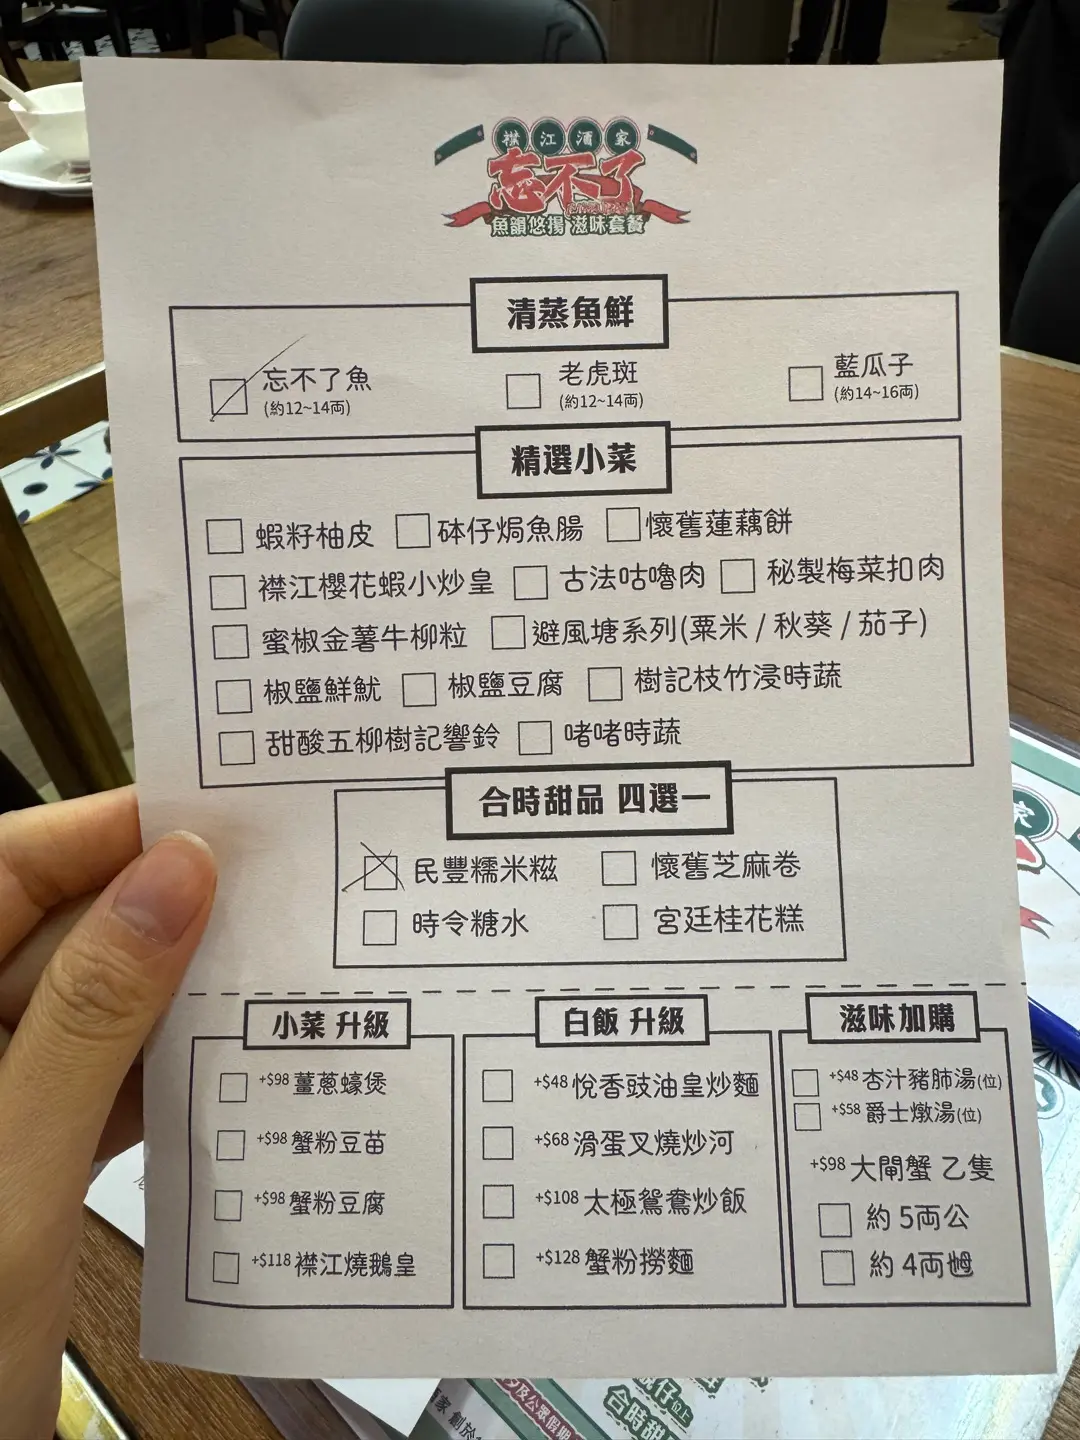 襟江酒家
忘不了
魚韻悠揚 滋味套餐
清蒸魚鮮
忘不了魚 老虎斑 藍瓜子
(約12~14両) (約12~14両) (約14~16両)
精選小菜
蝦籽柚皮 砵仔焗魚腸 懷舊蓮藕餅
襟江櫻花蝦小炒皇 古法咕嚕肉 秘製梅菜扣肉
蜜椒金薯牛柳粒 避風塘系列(粟米 / 秋葵 / 茄子)
椒鹽鮮魷 椒鹽豆腐 樹記枝竹浸時蔬
甜酸五柳樹記響鈴 啫啫時蔬
合時甜品 四選一
民豐糯米糍 懷舊芝麻卷
時令糖水 宮廷桂花糕
小菜 升級
+$98 薑蔥蠔煲
+$98 蟹粉豆苗
+$98 蟹粉豆腐
+$118 襟江燒鵝皇
白飯 升級
+$48 悅香豉油皇炒麵
+$68 滑蛋叉燒炒河
+$108 太極鴛鴦炒飯
+$128 蟹粉撈麵
滋味加購
+$48 杏汁豬肺湯(位)
+$58 爵士燉湯(位)
+$98 大閘蟹 乙隻
約 5両公
約 4両乸
家
及公眾假期
合時甜
家 創於